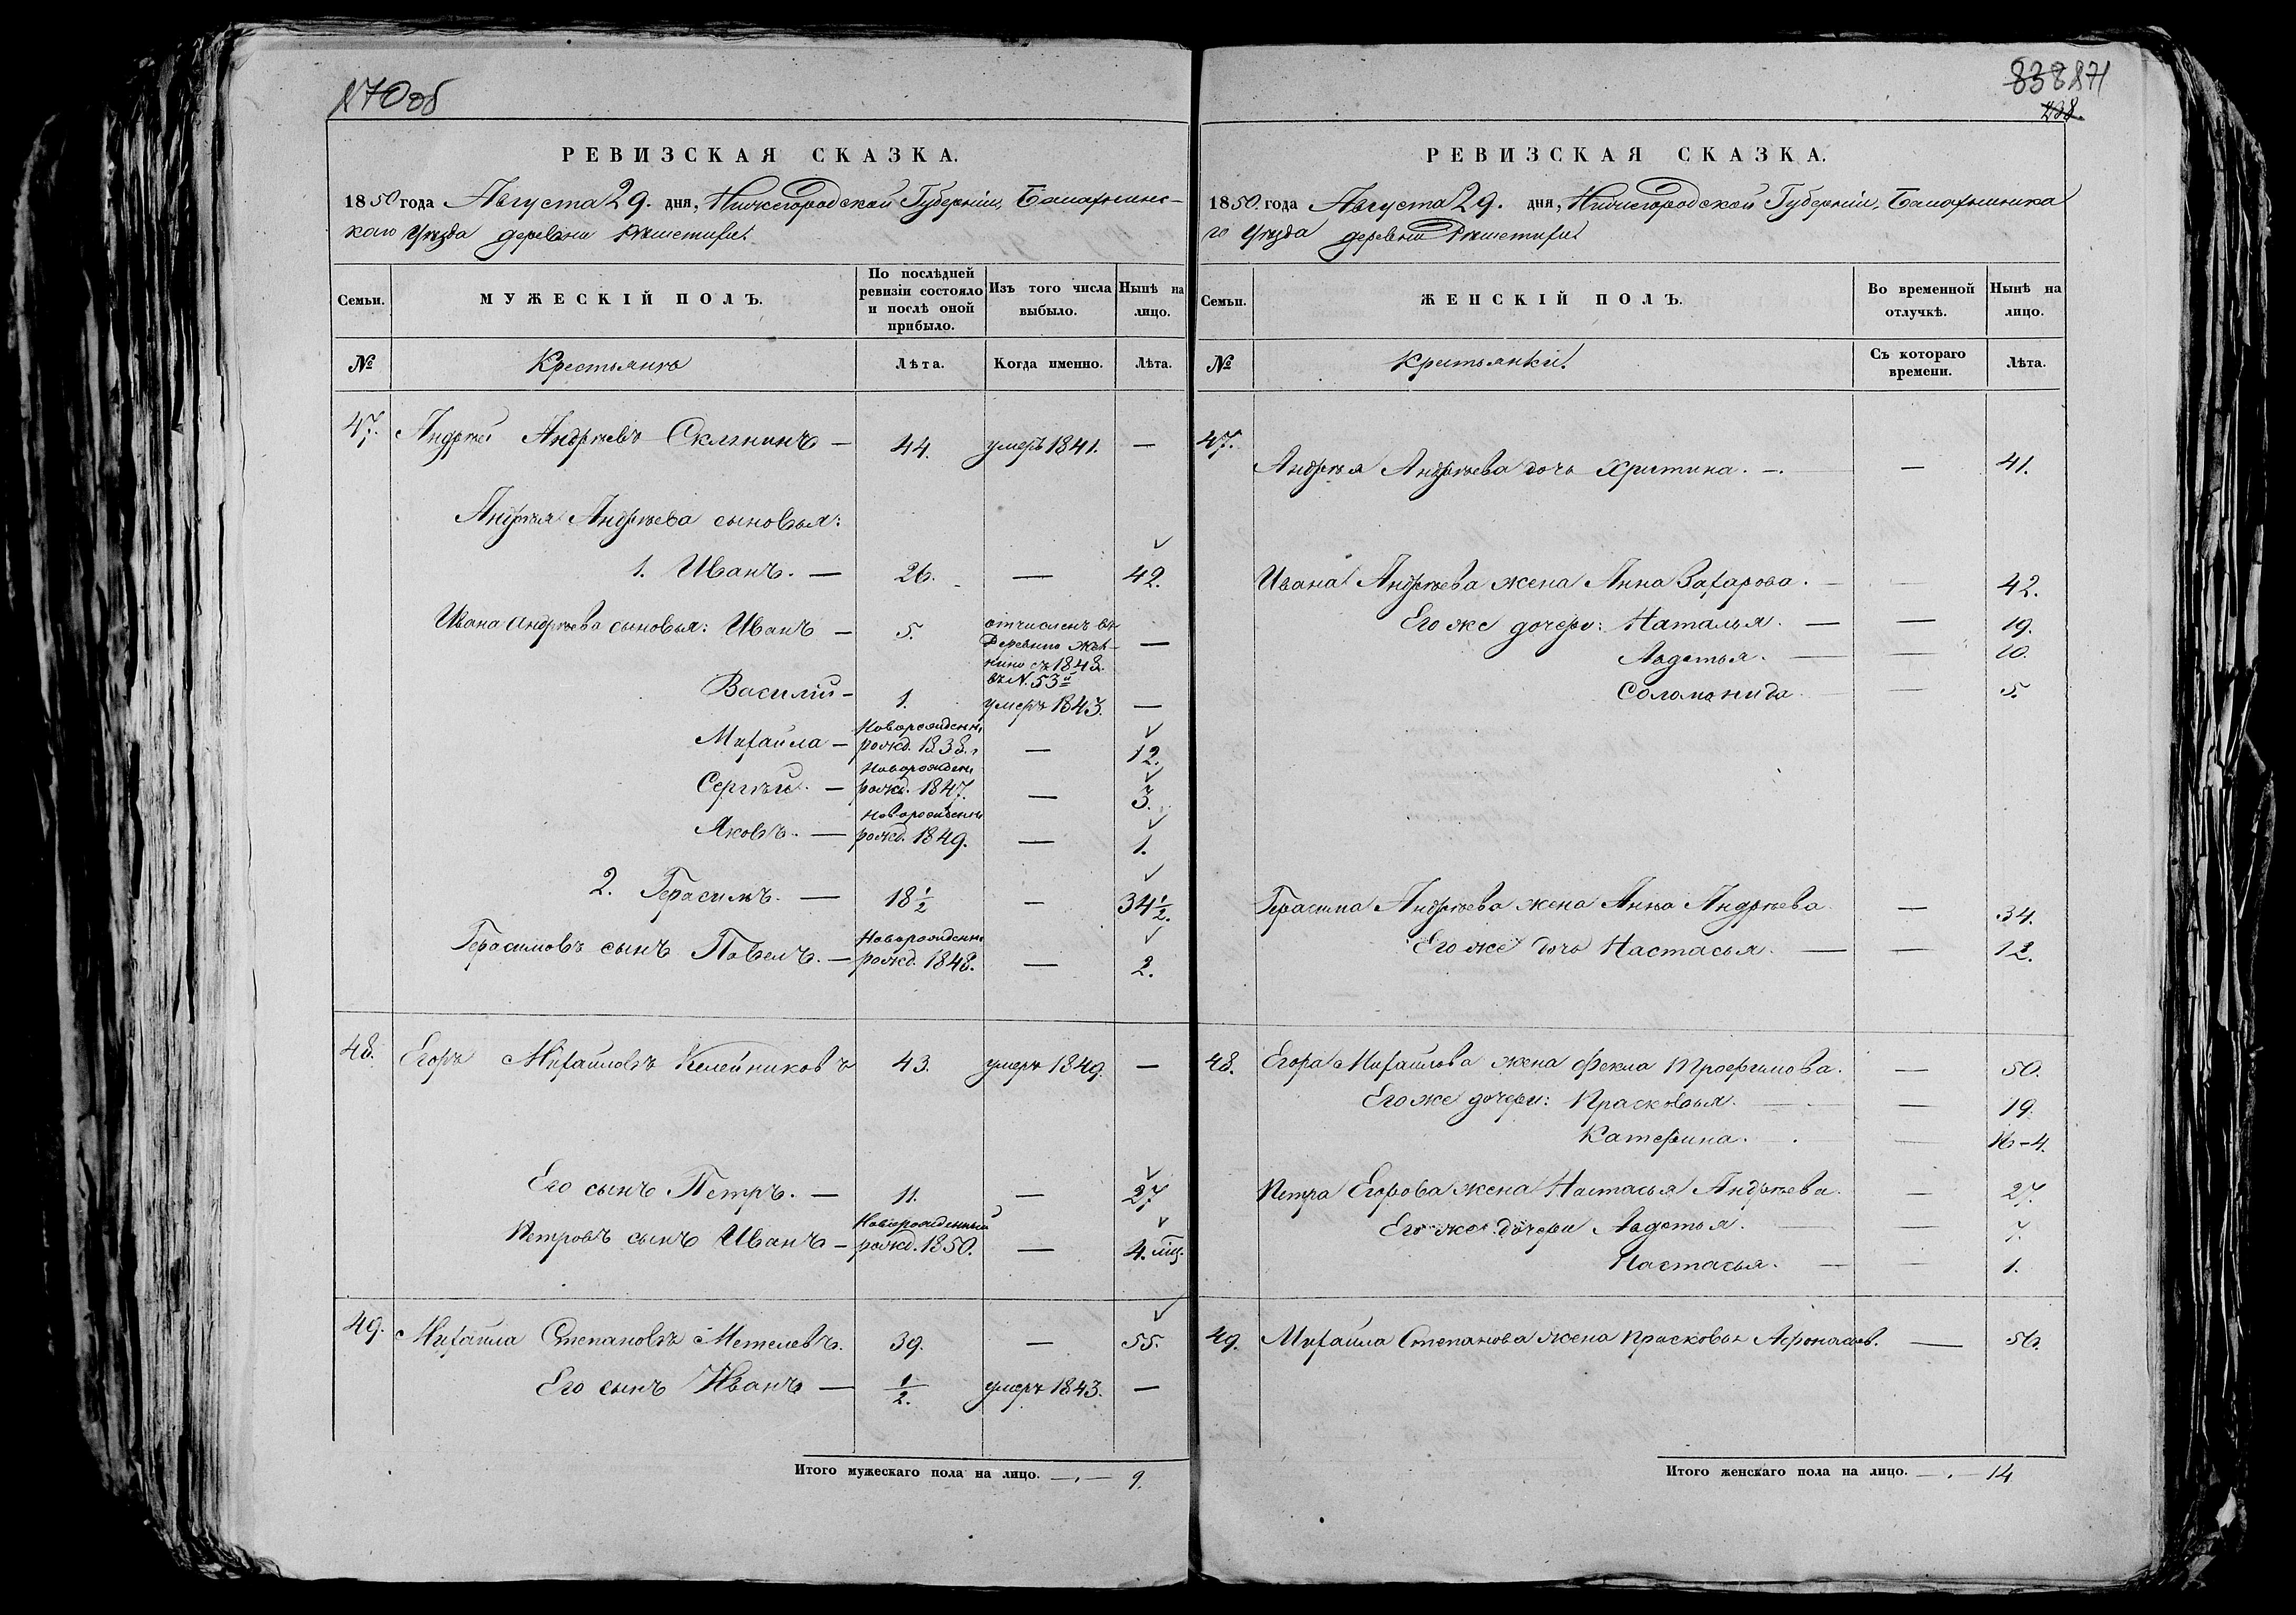 870 об
РЕВИЗСКАЯ СКАЗКА.
1850 года Августа 29. дня, Нижегородской Губерніи, Балахнинс-
каго Уѣзда деревни Рѣшетихи.
Семьи. МУЖЕСКІЙ ПОЛЪ. По послѣдней ревизіи состояло и послѣ оной прибыло. Изъ того числа выбыло. Нынѣ на лицо.
№ Крестьянъ Лѣта. Когда именно. Лѣта.
47. Андрей Андреевъ Склянинъ — 44. умеръ 1841. —
Андрея Андреева сыновья:
1. Иванъ. — 26. — 42.
Ивана Андреева сыновья: Иванъ — 5. отчисленъ въ деревню съ 1848. въ N. 53й —
Василій — 1. умеръ 1843. —
Михайла — Новорожденн. рожд. 1838. — 12.
Сергѣй. — Новорожден. рожд. 1847. — 3.
Яковъ. — Новорожденн. рожд. 1849. — 1.
2. Герасимъ. — 18 1/2 — 34 1/2.
Герасимовъ сынъ Павелъ. — Новорожденн. рожд. 1848. — 2.
48. Егоръ Михайловъ Келейниковъ 43. умеръ 1849. —
Его сынъ Петръ. — 11. — 27
Петровъ сынъ Иванъ — Новорожденный рожд. 1850. — 4. мц.
49. Михайла Степановъ Метелевъ. 39. — 55.
Его сынъ Иванъ — 1/2. умеръ 1843. —
Итого мужескаго пола на лицо. — 9.
838 871
РЕВИЗСКАЯ СКАЗКА.
1850. года Августа 29. дня, Нижегородской Губерніи, Балахнинска
го Уѣзда деревни Рѣшетихи.
Семьи. ЖЕНСКІЙ ПОЛЪ. Во временной отлучкѣ. Нынѣ на лицо.
№ Крестьянки. Съ котораго времени. Лѣта.
47. Андрея Андреева дочь Христина. — — 41.
Ивана Андреева жена Анна Захарова. — 42.
Его же дочери: Наталья. — — 19.
Авдотья. — — 10.
Соломанида. — 5.
Герасима Андреева жена Анна Андреева — 34.
Его же дочь Настасья. — — 12.
48. Егора Михайлова жена Фекла Трофимова. — 50.
Его же дочери: Прасковья. — — 19.
Катерина. — 16-4.
Петра Егорова жена Настасья Андреева. — 27.
Его же дочери Авдотья. — — 7.
Настасья. — — 1.
49. Михайла Степанова жена Прасковья Афонасьев. — 56.
Итого женскаго пола на лицо. — 14